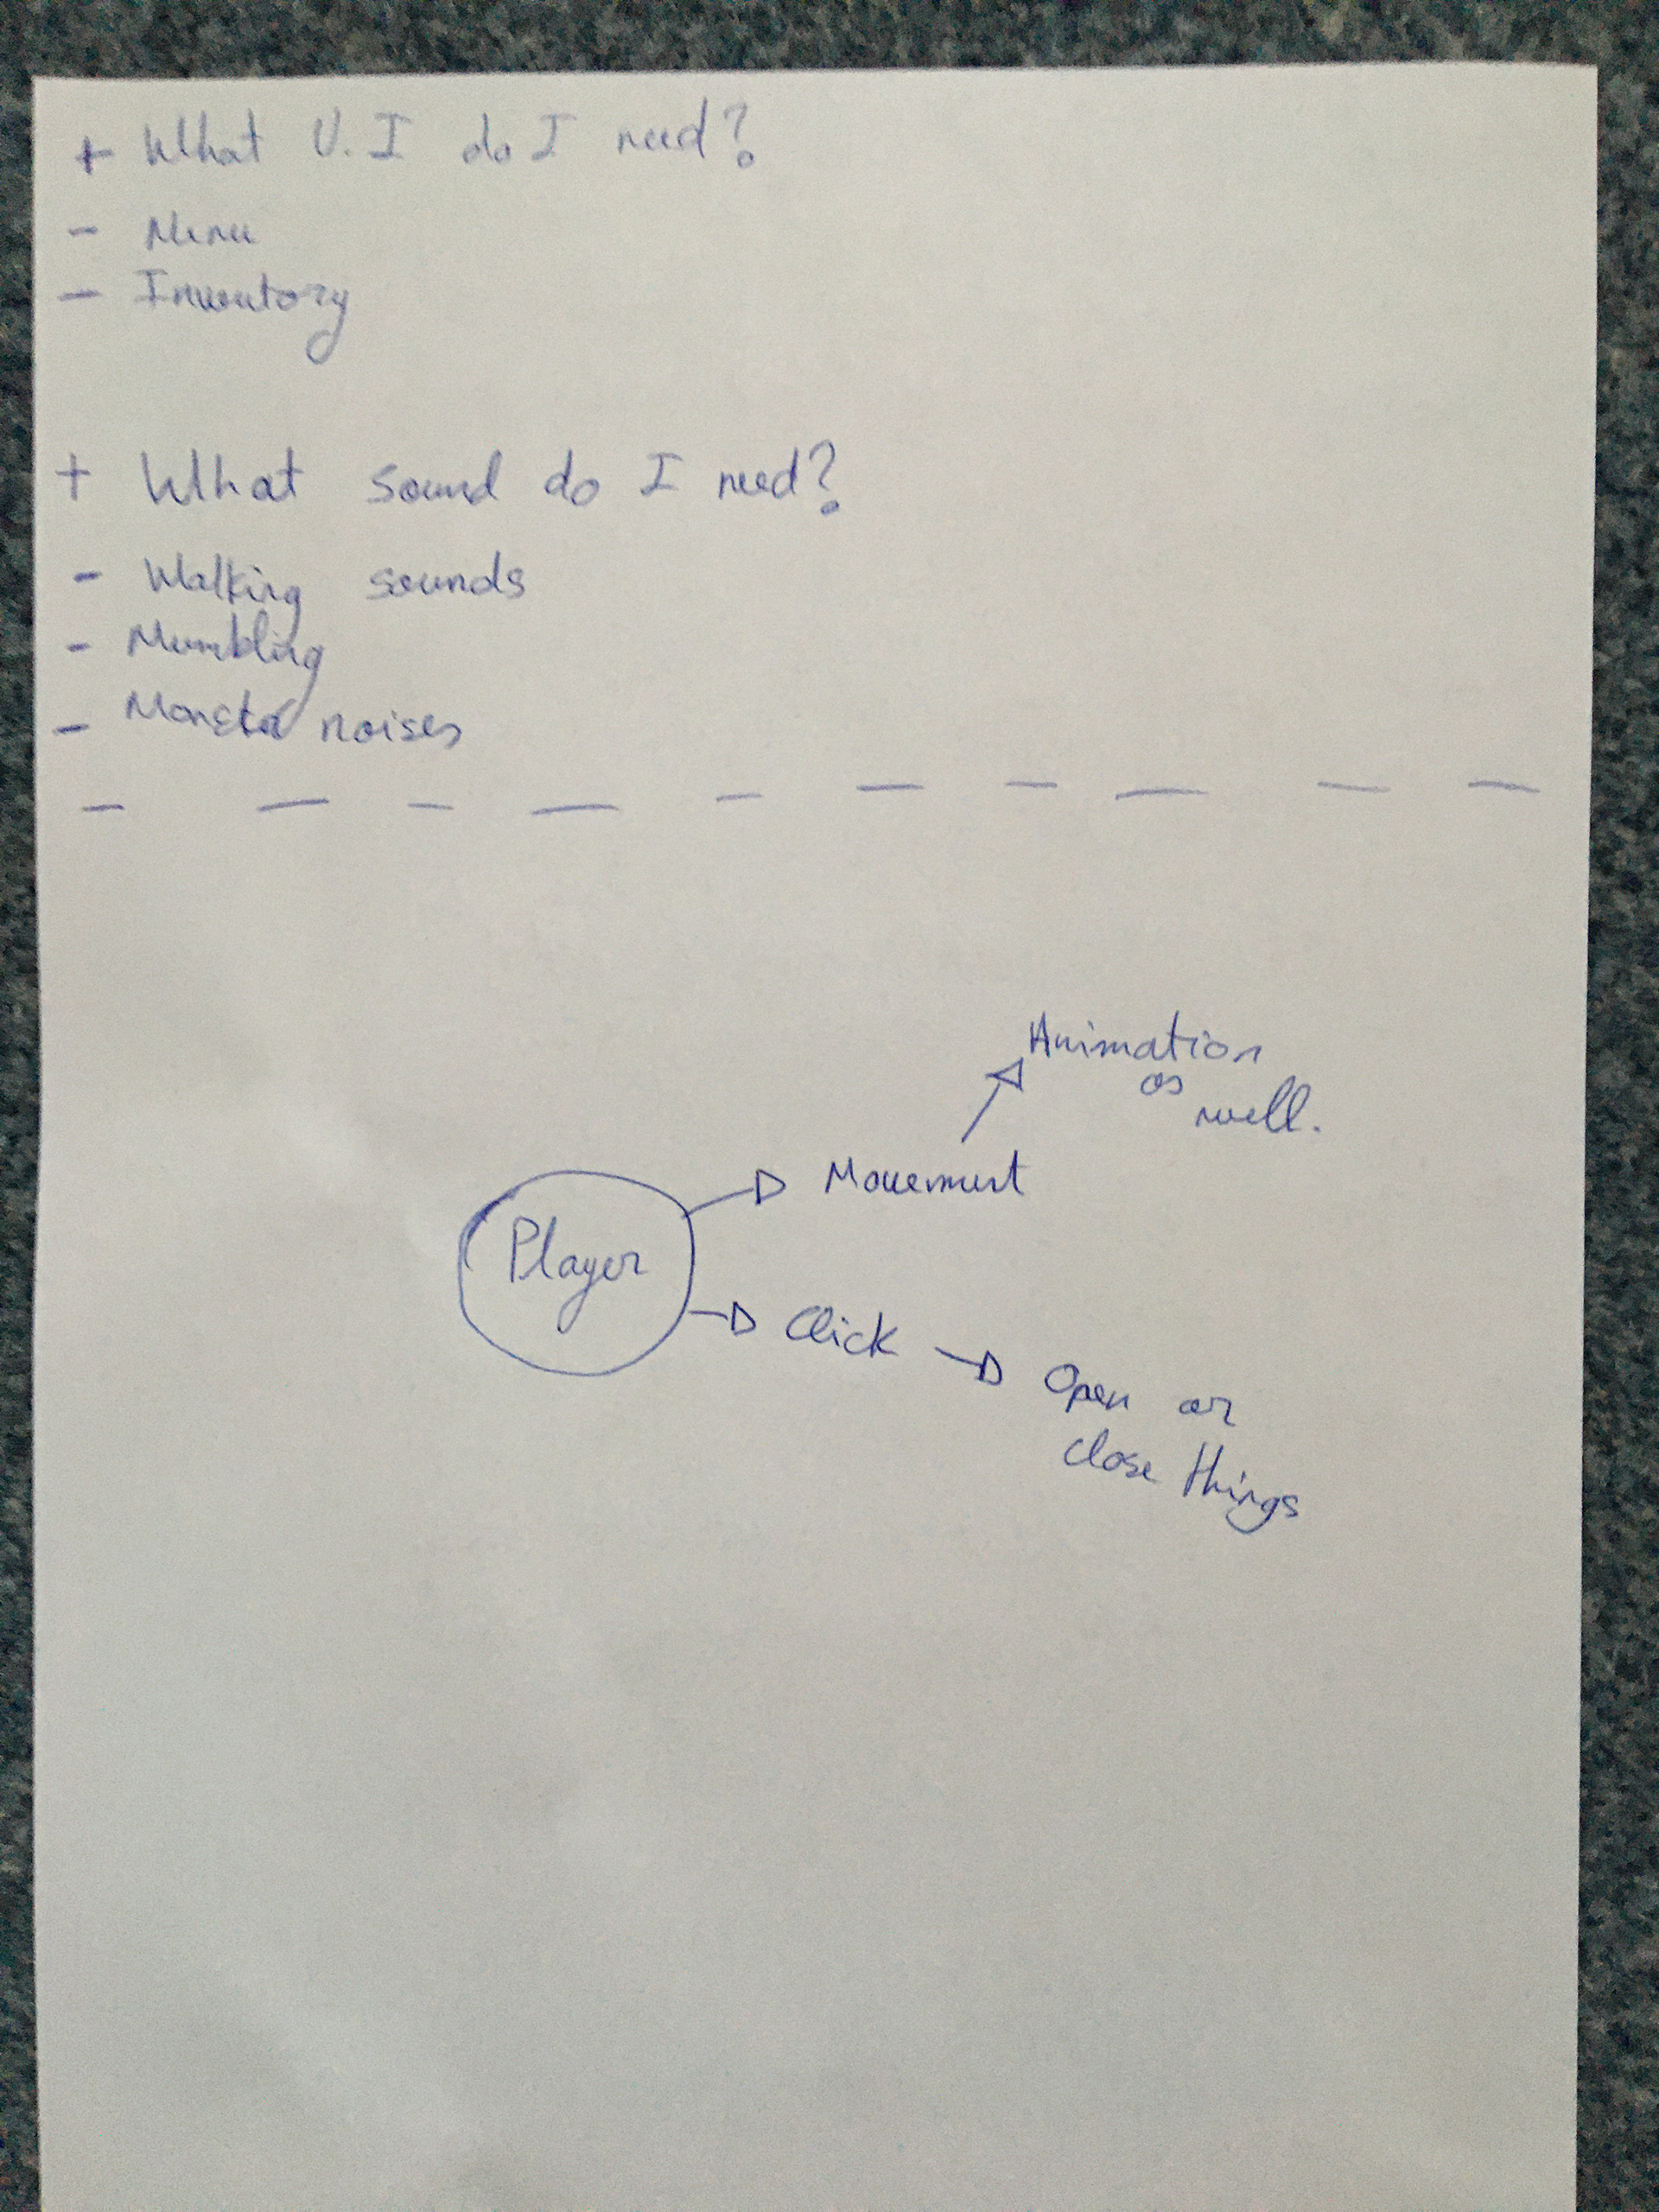 + What U.I do I need?
- Menu
- Inventory
+ What sound do I need?
- Walking sounds
- Mumbling
- Monster noises
Animation
as
well.
Movement
Player
Click
Open or
close things